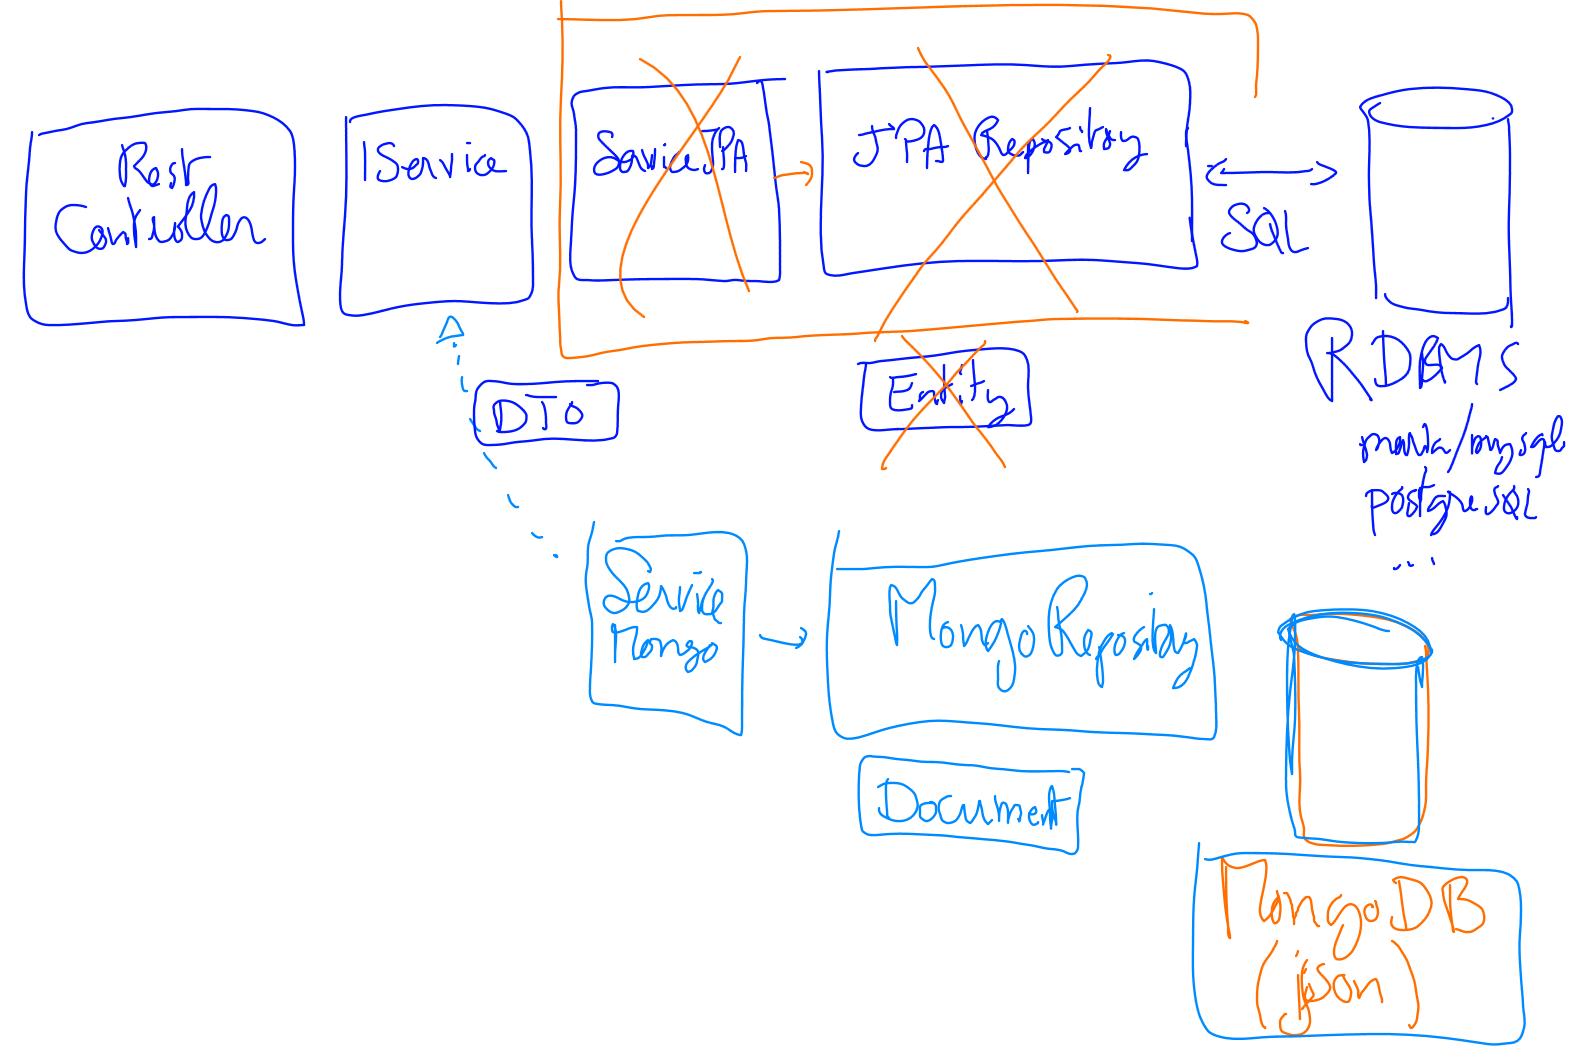 Rest
Controller
IService
Service JPA
JPA Repository
SQL
RDBMS
maria/mysql
postgreSQL
...
DTO
Entity
Service
Mongo
MongoRepository
Document
MongoDB
(json)